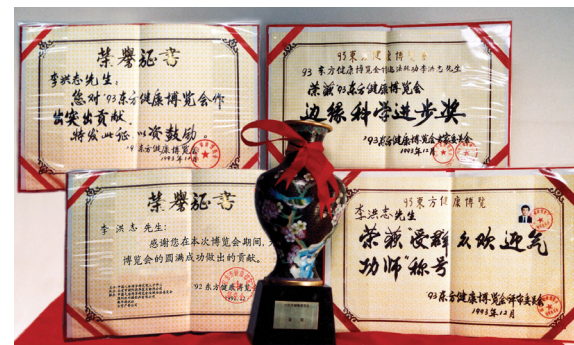 荣誉证书
李洪志先生:
您对'93东方健康博览会作
出突出贡献,
特发此证以资鼓励。
1993年12月
93东方健康博览会
荣获'93东方健康博览会
边缘科学进步奖
'93东方健康博览会评审委员会
1993年12月
荣誉证书
李洪志先生:
感谢您在本次博览会期间,
博览会的圆满成功做出的贡献。
'92东方健康博览会
1992.12
93东方健康博览
李洪志先生
荣获"受群众欢迎气
功师"称号
'93东方健康博览会评审委员会
1993年12月